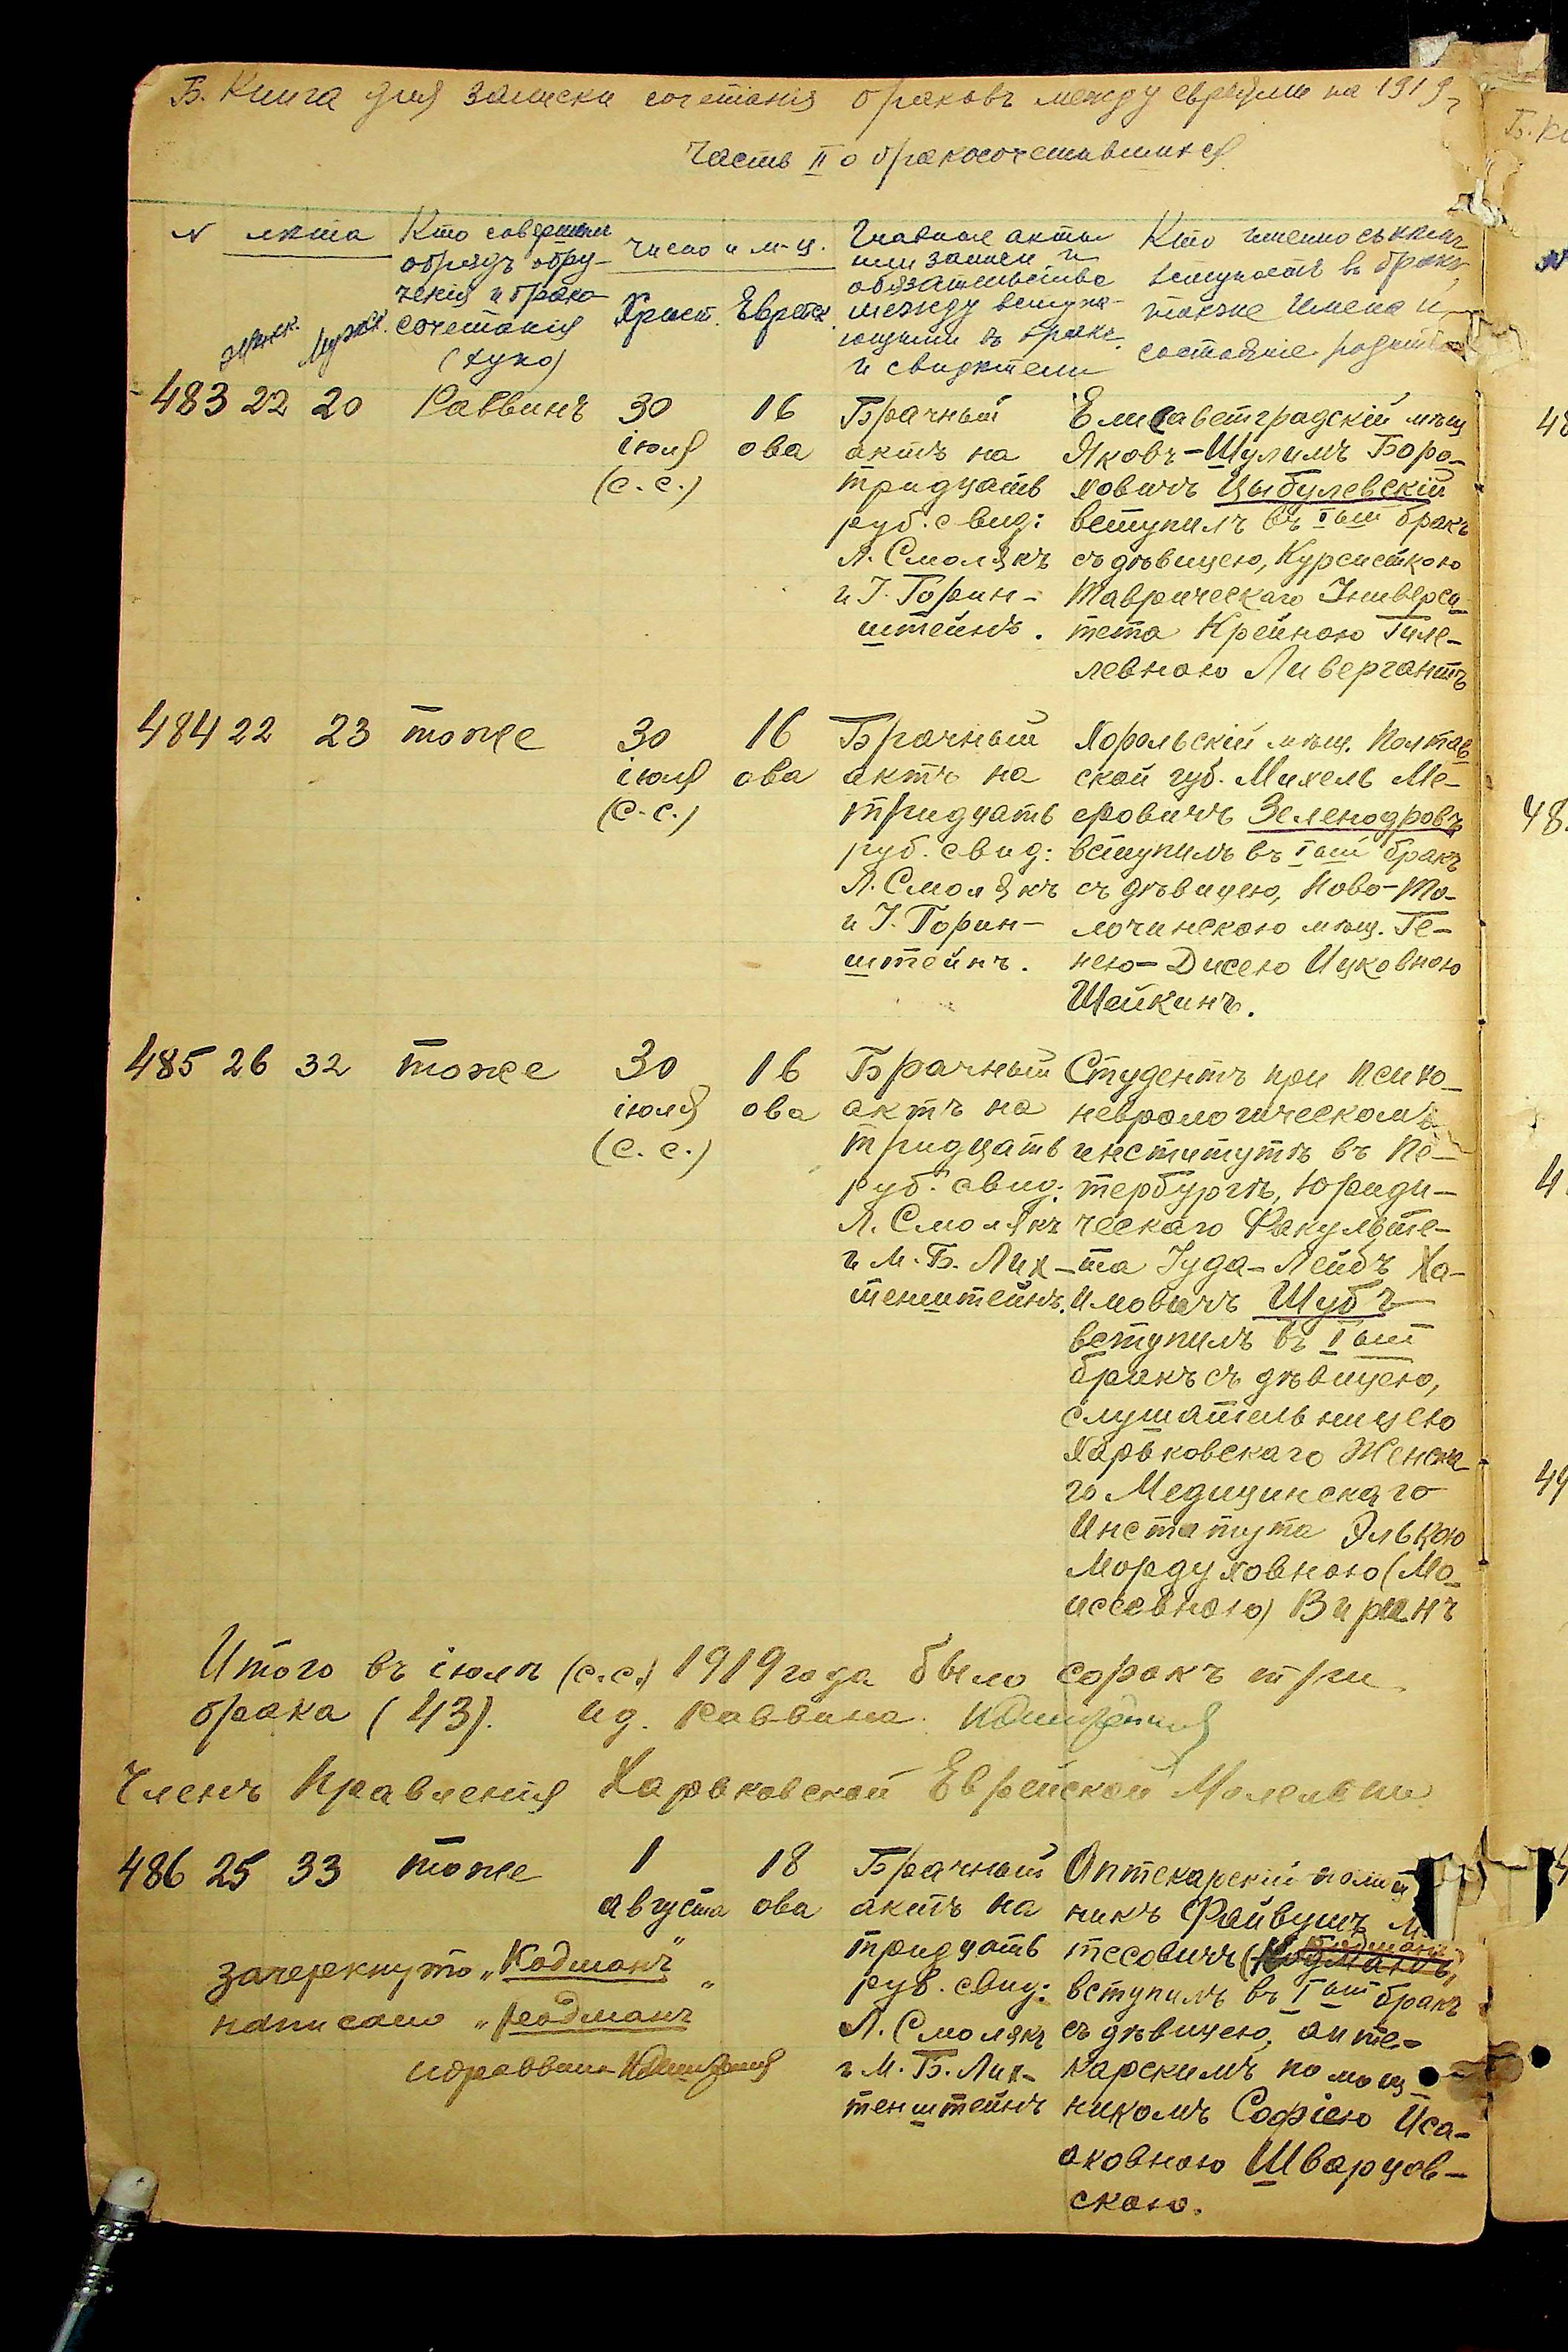 Б. Книга для записки сочетанія браковъ между евреями на 1919 г
Часть II о бракосочетавшихся
№ лѣта
Женск. Мужск.
Кто совершилъ
обрядъ обру-
ченія и брако-
сочетанія
(хупо)
Число и м-ц.
Христ. Еврейск.
Главные акты
или записи и
обязательства
между вступа-
ющими въ бракъ
и свидѣтели
Кто именно съ кѣмъ
вступаетъ въ бракъ,
также имена и
состояніе родит
483 22 20 Раввинъ
30
іюля
(с.с.)
16
ова
Брачный
актъ на
тридцать
руб. свид:
Л. Смолякъ
и І. Горин-
штейнъ.
Елисаветградскій мѣщ
Яковъ-Шулимъ Боро-
ховичъ Цыбулевскій
вступилъ въ Iый бракъ
съ дѣвицею, Курсисткою
Таврическаго Универси-
тета Крейною Гиле-
левною Ливергантъ
484 22 23 тоже
30
іюля
(с.с.)
16
ова
Брачный
актъ на
тридцать
руб. свид:
Л. Смолякъ
и І. Горин-
штейнъ.
Хорольскій мѣщ. Полтав
ской губ. Михель Ме-
еровичъ Зеленодровъ
вступилъ въ Iый бракъ
съ дѣвицею, Ново-То-
лочинскою мѣщ. Ге-
нею-Дисею Ицковною
Шейкинъ.
485 26 32 тоже
30
іюля
(с.с.)
16
ова
Брачный
актъ на
тридцать
руб. свид:
Л. Смолякъ
и М.Б. Лих-
тенштейнъ.
Студентъ при Психо-
неврологическомъ
институтѣ въ Пе-
тербургѣ, Юриди-
ческаго Факульте-
та Іуда-Лейбъ Ха-
имовичъ Шубъ
вступилъ въ Iый
бракъ съ дѣвицею,
слушательницею
Харьковскаго Женска-
го Медицинскаго
Института Элькою
Мордуховною (Мо-
исеевною)
Итого въ іюлѣ (с.с.) 1919 года было сорокъ три
брака (43). ид. Раввина
Членъ Правленія Харьковской Еврейской Молельни
486 25 33 тоже
1
августа
18
ова
Брачный
актъ на
тридцать
руб. свид:
Л. Смолякъ
и М.Б. Лих-
тенштейнъ
Аптекарскій помощ
никъ Файвушъ М
тесовичъ
вступилъ въ Iый бракъ
съ дѣвицею, апте-
карскимъ помощ-
никомъ Софіею Иса-
аковною Шварцов-
скою.
зачеркнуто „Кодманъ"
написано
ид раввина